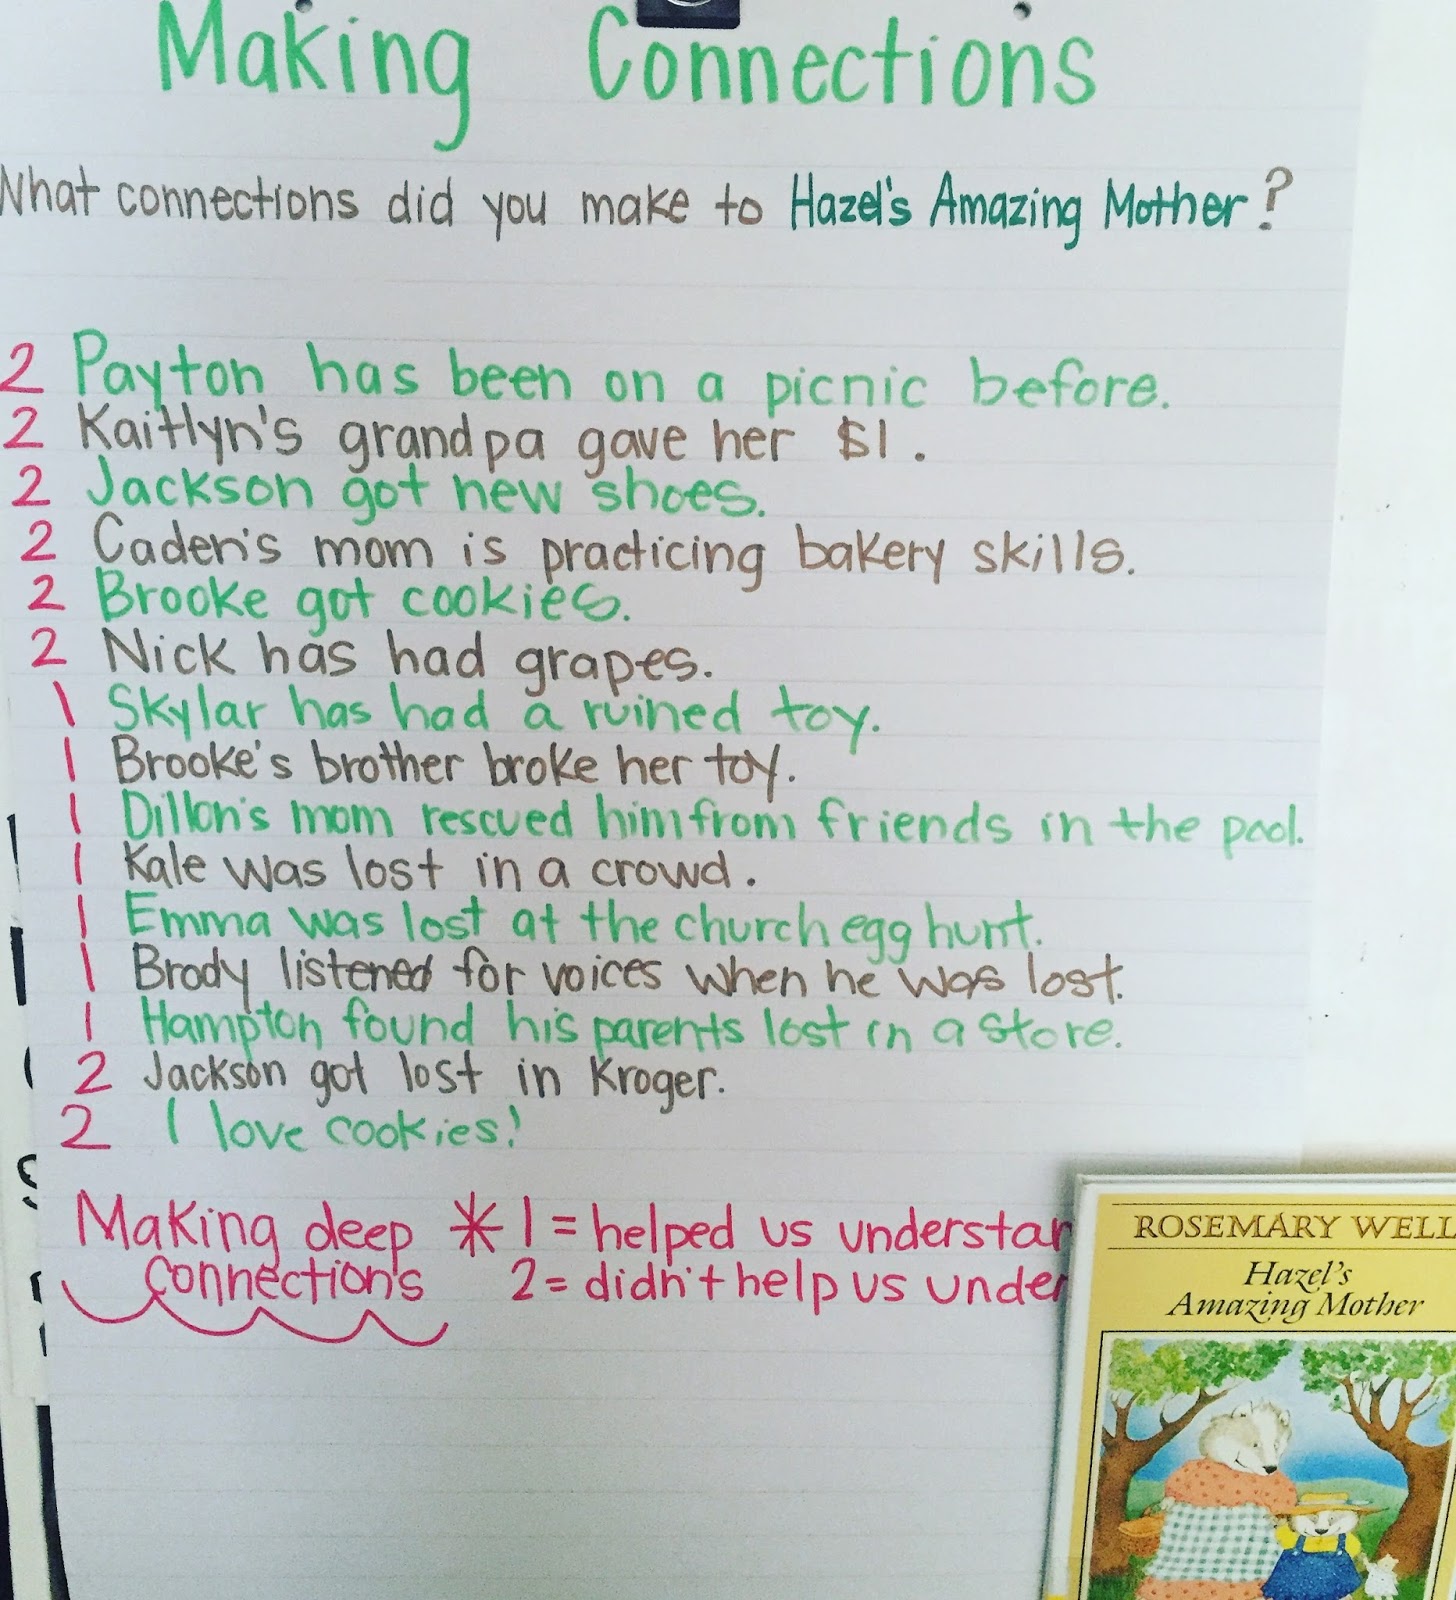 Making Connections
What connections did you make to Hazel's Amazing Mother?
2 Payton has been on a picnic before.
2 Kaitlyn's grandpa gave her $1.
2 Jackson got new shoes.
2 Caden's mom is practicing bakery skills.
2 Brooke got cookies.
2 Nick has had grapes.
1 Skylar has had a ruined toy.
1 Brooke's brother broke her toy.
1 Dillon's mom rescued him from friends in the pool.
1 Kale was lost in a crowd.
1 Emma was lost at the church egg hunt.
1 Brody listened for voices when he was lost.
1 Hampton found his parents lost in a store.
2 Jackson got lost in Kroger.
2 I love cookies!
Making deep * 1 = helped us understan
connections 2 = didn't help us under
ROSEMARY WELL
Hazel's
Amazing Mother